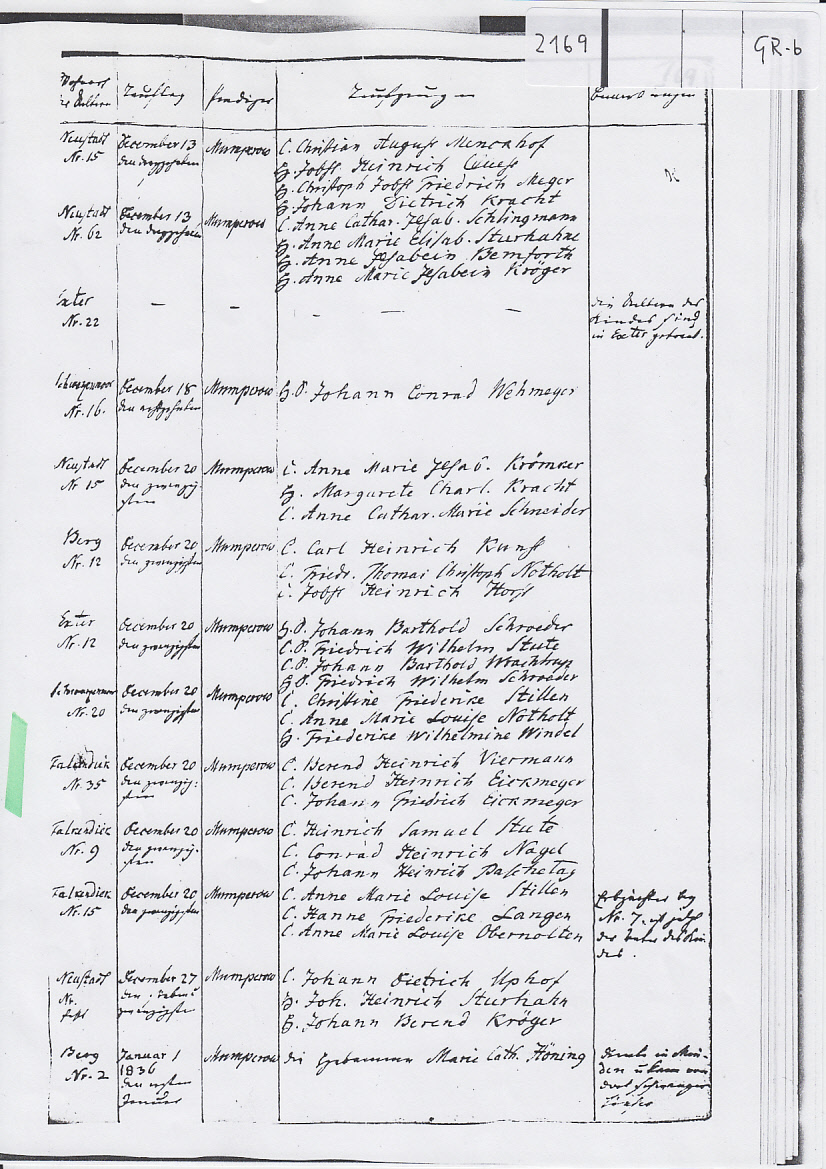 2169
GR-6
Wohnort der Aeltern
Tauftag
Prediger
Taufzeugen
Bemerkungen
Neustadt Nr. 15
December 13 den dreyzehnten
Mumperow
C. Christian August Menckhof
H. Jobst Heinrich
H. Christoph Jobst Friedrich Meyer
H. Johann Dietrich Kracht
Neustadt Nr. 62
December 13 den dreyzehnten
Mumperow
C. Anne Cathar. Ilsab. Schlingmann
H. Anne Marie Elisab. Sturhahne
H. Anne Ilsabein Bemforth
H. Anne Marie Ilsabein Kröger
Exter Nr. 22
–
–
–
–
–
die Aeltern des
Kindes sind
in Exter getraut.
Schwarzenmoor Nr. 16.
December 18 den achtzehnten
Mumperow
H.P. Johann Conrad Wehmeyer
Neustadt Nr 15
December 20 den zwanzigsten
Mumperow
C. Anne Marie Ilsab. Krömker
H. Margarete Charl. Kracht
C. Anne Cathar. Marie Schneider
Berg Nr. 12
December 20 den zwanzigsten
Mumperow
C. Carl Heinrich Kunst
C. Friedr. Thomas Christoph Notholt
C. Jobst Heinrich Horst
Exter Nr. 12
December 20 den zwanzigsten
Mumperow
H.P. Johann Barthold Schroeder
C.P. Friedrich Wilhelm Stute
C.P. Johann Barthold
H.P. Friedrich Wilhelm Schroeder
Schwarzenmoor Nr. 20
December 20 den zwanzigsten
Mumperow
C. Christine Friederike Stillen
C. Anne Marie Louise Notholt
H. Friederike Wilhelmine Windel
Falkendiek Nr. 35
December 20 den zwanzigsten
Mumperow
C. Berend Heinrich Viermann
C. Berend Heinrich Eickmeyer
C. Johann Friedrich Eickmeyer
Falkendiek Nr. 9
December 20 den zwanzigsten
Mumperow
C. Heinrich Samuel Stute
C. Conrad Heinrich Nagel
C. Johann Heinrich Paschetag
Falkendiek Nr. 15
December 20 den zwanzigsten
Mumperow
C. Anne Marie Louise Stillen
C. Hanne Friederike Langen
C. Anne Marie Louise Obernolten
Erbpächter bey
Nr. 7. ist jetzt
der Vater des Kin-
des.
Neustadt Nr.
December 27 den sieben u zwanzigsten
Mumperow
C. Johann Dietrich Uphof
H. Joh. Heinrich Sturhahn
H. Johann Berend Kröger
Berg Nr. 2
Januar 1 1836 den ersten Januar
Mumperow
die Hebamme Marie Cath. Höning
diente in Min-
den u kam von
dort schwanger
zurück